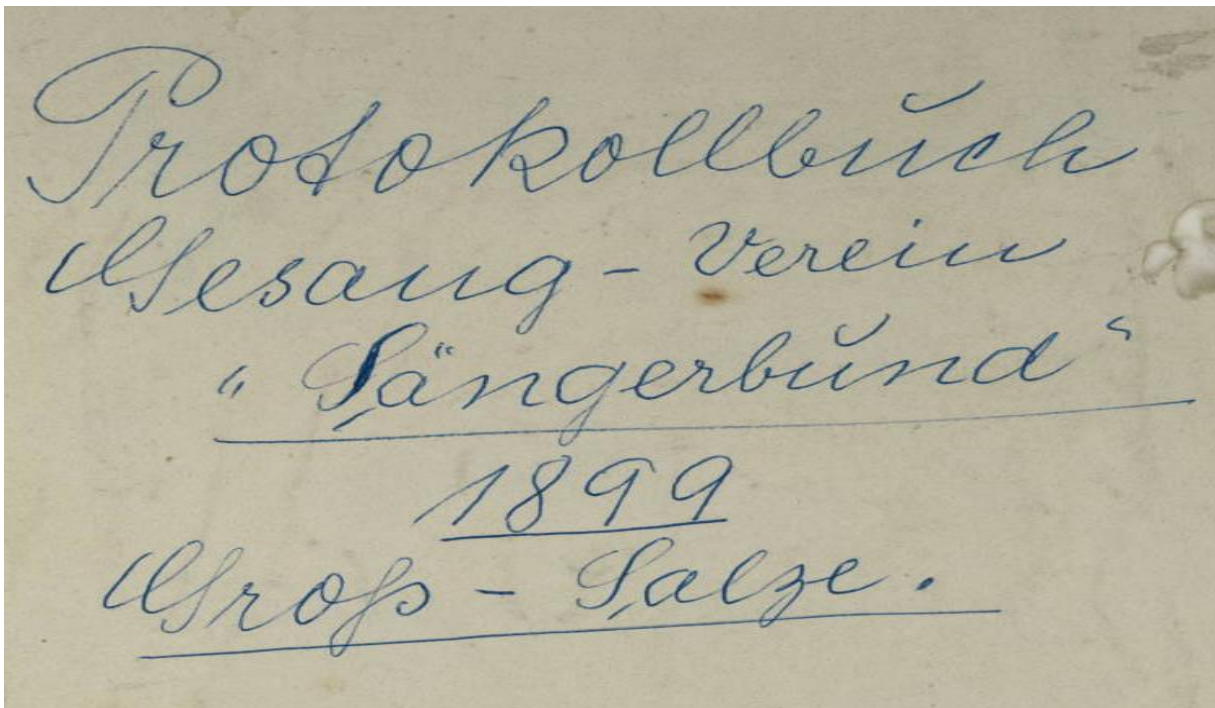 Protokollbuch
Gesang - Verein
"Sängerbund"
1899
Groß - Salze.